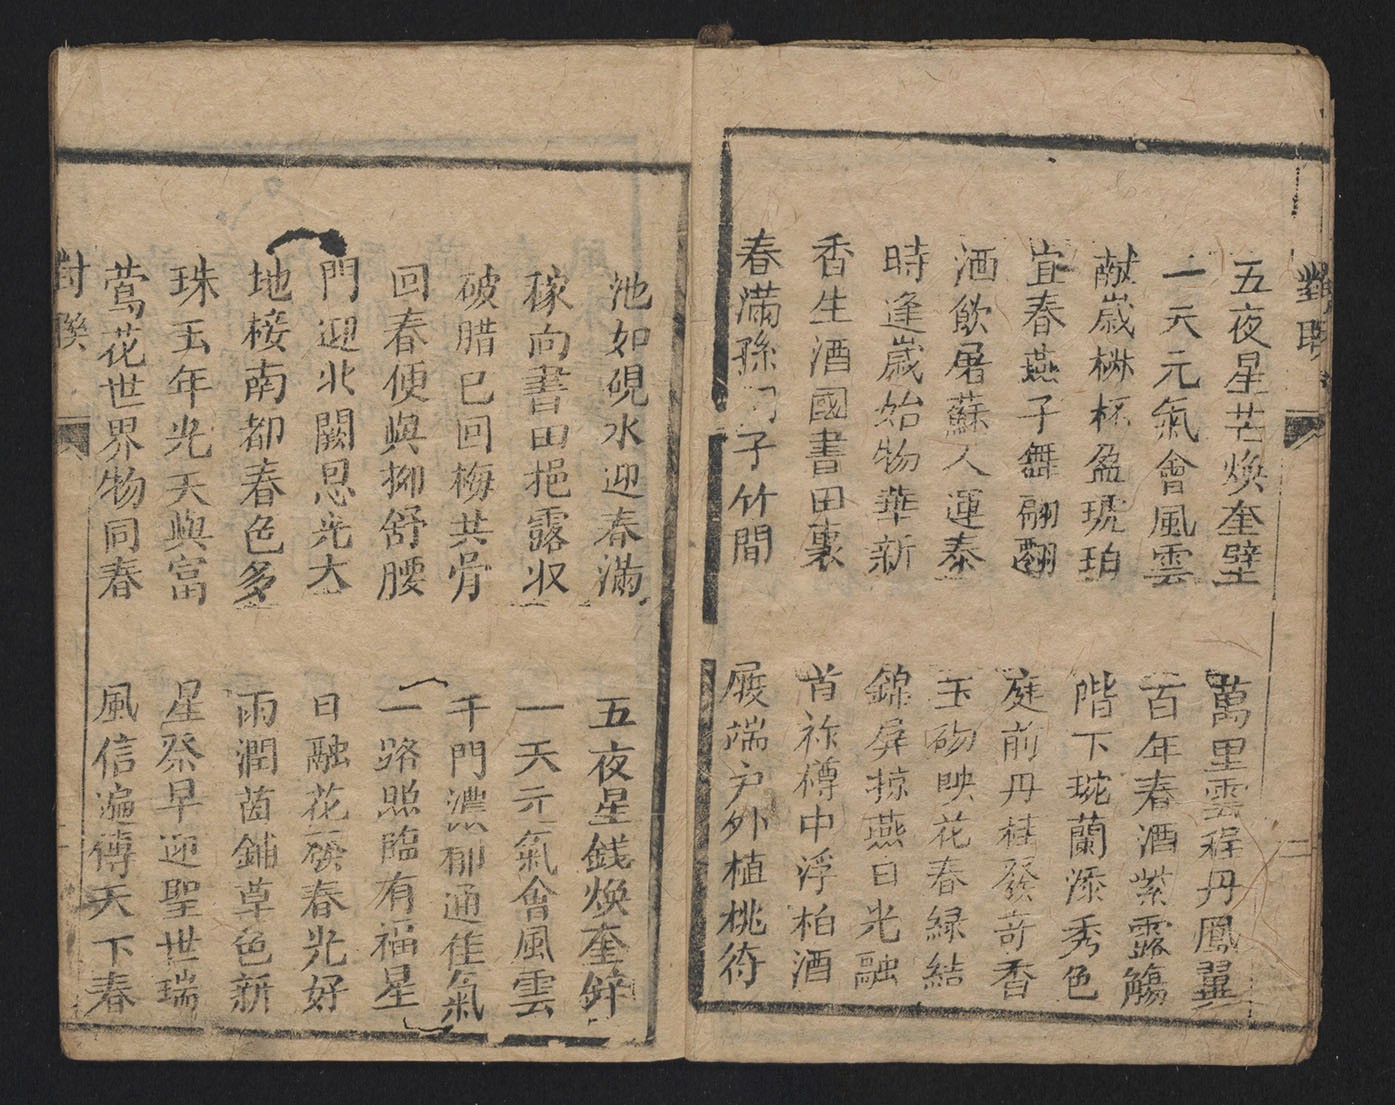 對聯
五夜星芒煥奎壁
一天元氣會風雲
獻歲椒杯盈琥珀
宜春燕子舞翩翻
酒飲屠蘇人運泰
時逢歲始物華新
香生酒國書田裏
春滿孫子竹間
萬里雲程丹鳳翼
百年春酒紫露觴
階下琬蘭添秀色
庭前丹桂發奇香
玉砌映花春緑結
錦屏掠燕日光融
首祚樽中浮柏酒
展端户外植桃符
二
池如硯水迎春滿
稼向書田挹露収
破腊已回梅共骨
回春便與柳舒腰
門迎北闕恩光大
地接南都春色多
珠玉年光天與富
莺花世界物同春
五夜星銭煥奎
一天元氣會風雲
千門濃郁通佳氣
一路照臨有福星
日融花發春光好
雨潤茵鋪草色新
星祭早迎聖世瑞
風信遍傳天下春
對聯